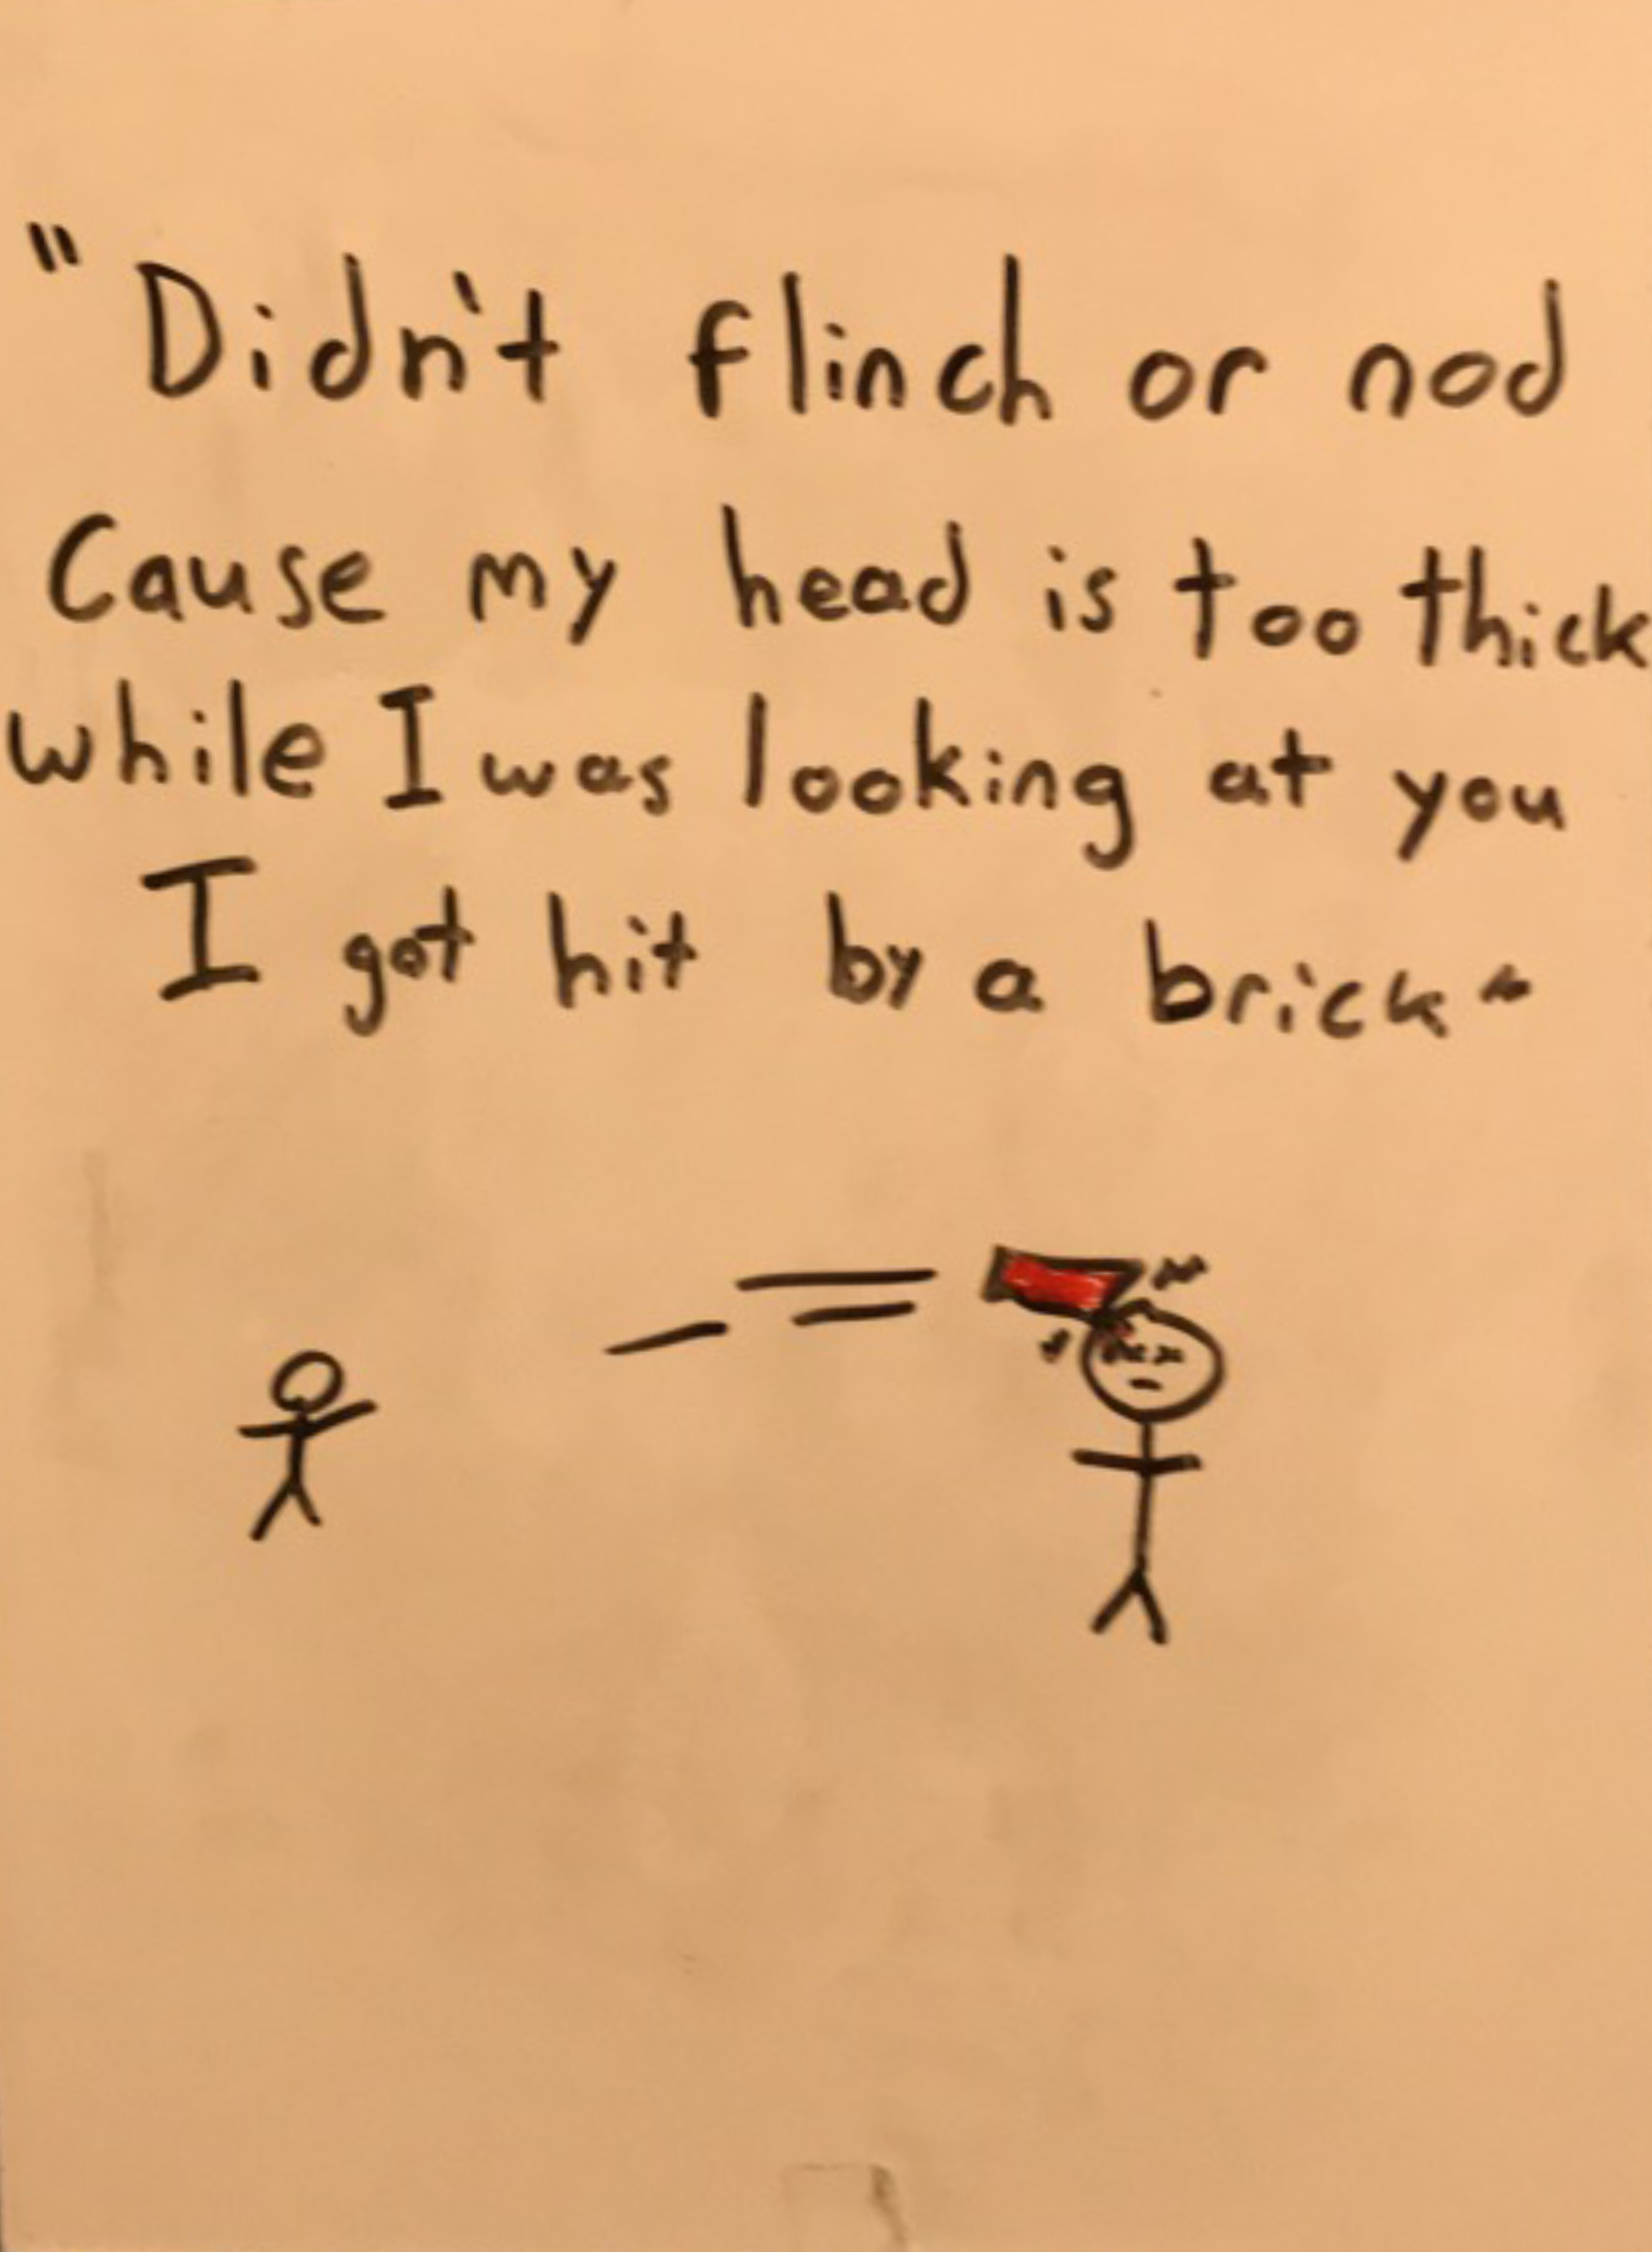 "Didn't flinch or nod
Cause my head is too thick
while I was looking at you
I got hit by a brick"